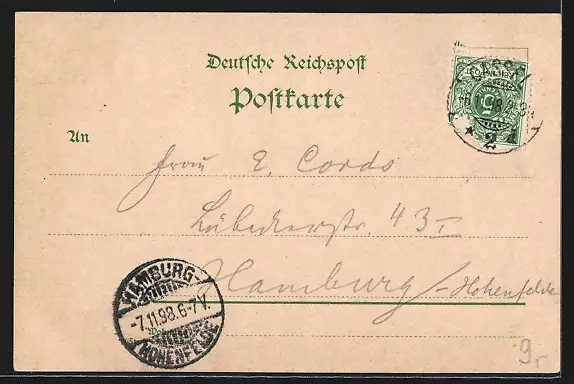 Deutsche Reichspost
Postkarte
An
Frau E. Cords
Lübeckerstr. 43 I
Hamburg-Hohenfelde
HAMBURG-
-7.11.98.6-7V.
HOHENFELDE
5
* 2 d
9r